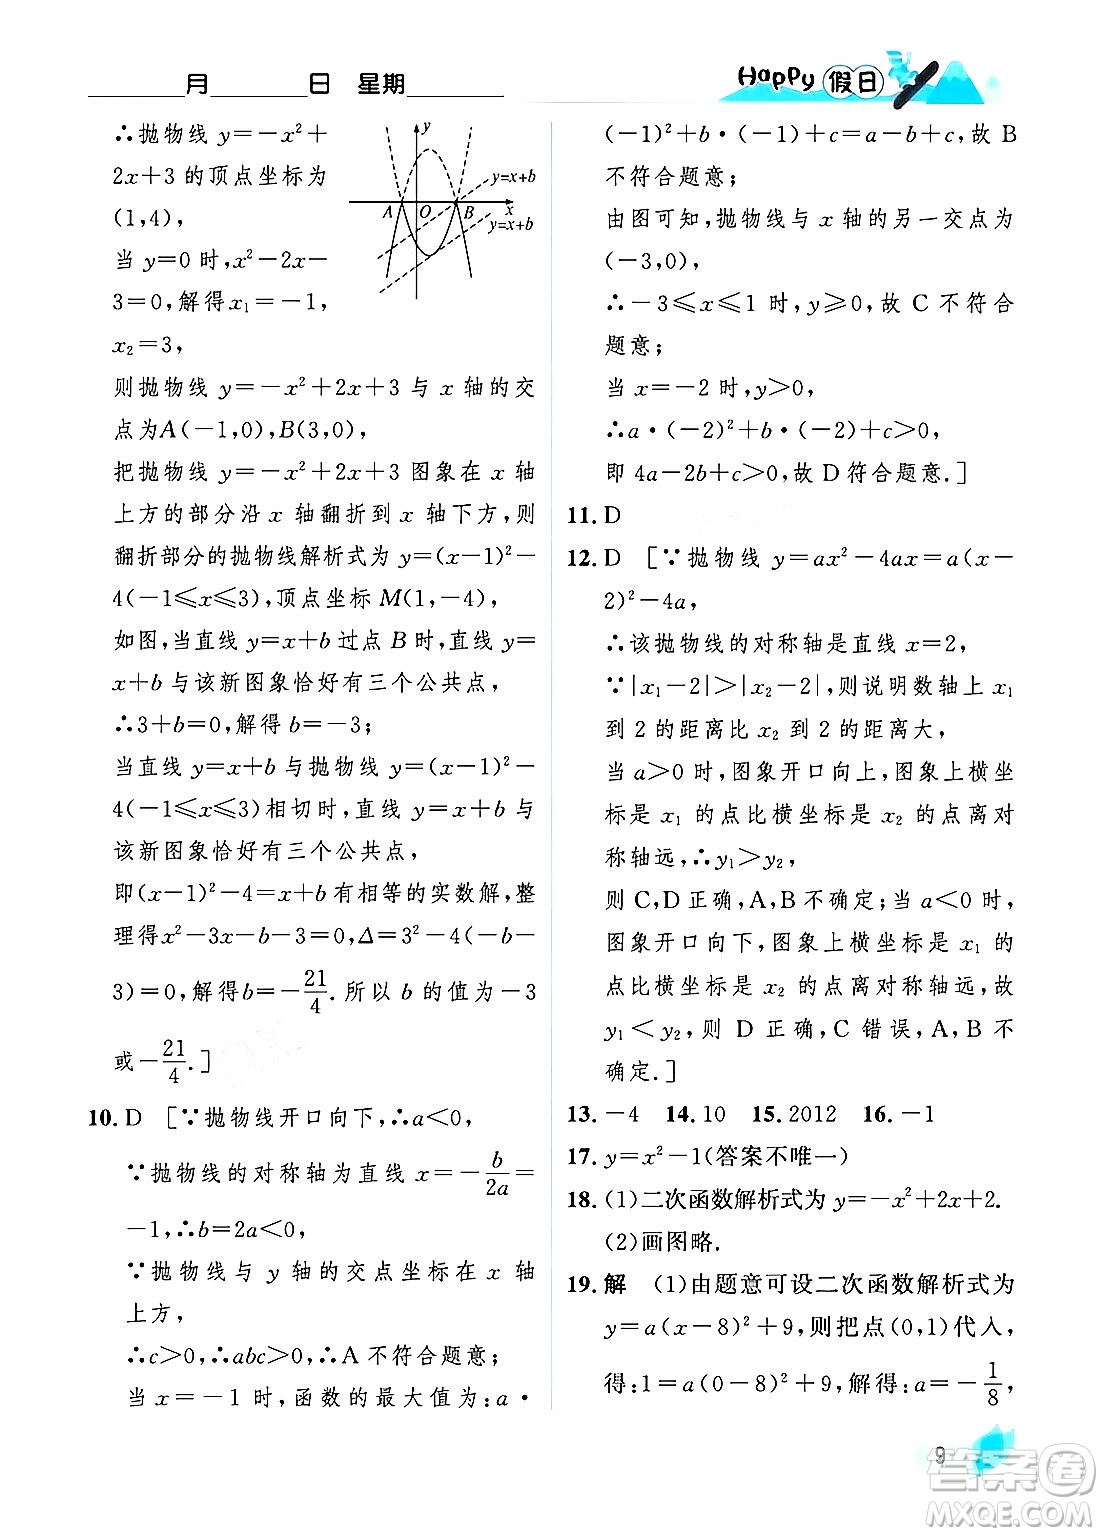 月 日 星期
Happy 假日
∴抛物线 y=－x²＋
2x＋3 的顶点坐标为
(1,4),
当 y=0 时,x²－2x－
3=0,解得 x₁=－1,
x₂=3,
y
y=x+b
A O B x
y=x+b
则抛物线 y=－x²＋2x＋3 与 x 轴的交
点为A(－1,0),B(3,0),
把抛物线 y=－x²＋2x＋3 图象在 x 轴
上方的部分沿 x 轴翻折到 x 轴下方,则
翻折部分的抛物线解析式为 y=(x－1)²－
4(－1≤x≤3),顶点坐标 M(1,－4),
如图,当直线 y=x＋b 过点 B 时,直线 y=
x＋b 与该新图象恰好有三个公共点,
∴3＋b=0,解得 b=－3;
当直线 y=x＋b 与抛物线 y=(x－1)²－
4(－1≤x≤3)相切时,直线 y=x＋b 与
该新图象恰好有三个公共点,
即(x－1)²－4=x＋b 有相等的实数解,整
理得x²－3x－b－3=0,Δ=3²－4(－b－
3)=0,解得b=－21/4.所以 b 的值为－3
或－21/4.]
10. D [∵抛物线开口向下,∴a＜0,
∵抛物线的对称轴为直线 x=－b/2a=
－1,∴b=2a＜0,
∵抛物线与 y 轴的交点坐标在 x 轴
上方,
∴c＞0,∴abc＞0,∴A 不符合题意;
当 x=－1 时,函数的最大值为:a·
(－1)²＋b·(－1)＋c=a－b＋c,故 B
不符合题意;
由图可知,抛物线与 x 轴的另一交点为
(－3,0),
∴－3≤x≤1 时,y≥0,故 C 不符合
题意;
当 x=－2 时,y＞0,
∴a·(－2)²＋b·(－2)＋c＞0,
即 4a－2b＋c＞0,故 D 符合题意.]
11. D
12. D [∵抛物线 y=ax²－4ax=a(x－
2)²－4a,
∴该抛物线的对称轴是直线 x=2,
∵|x₁－2|＞|x₂－2|,则说明数轴上 x₁
到 2 的距离比 x₂ 到 2 的距离大,
当 a＞0 时,图象开口向上,图象上横坐
标是 x₁ 的点比横坐标是 x₂ 的点离对
称轴远,∴y₁＞y₂,
则 C,D 正确,A,B 不确定;当 a＜0 时,
图象开口向下,图象上横坐标是 x₁ 的
点比横坐标是 x₂ 的点离对称轴远,故
y₁＜y₂,则 D 正确,C 错误,A,B 不
确定.]
13. －4 14. 10 15. 2012 16. －1
17. y=x²－1(答案不唯一)
18. (1)二次函数解析式为 y=－x²＋2x＋2.
(2)画图略.
19. 解 (1)由题意可设二次函数解析式为
y=a(x－8)²＋9,则把点(0,1)代入,
得:1=a(0－8)²＋9,解得:a=－1/8,
9
答案圈
MXQE.COM